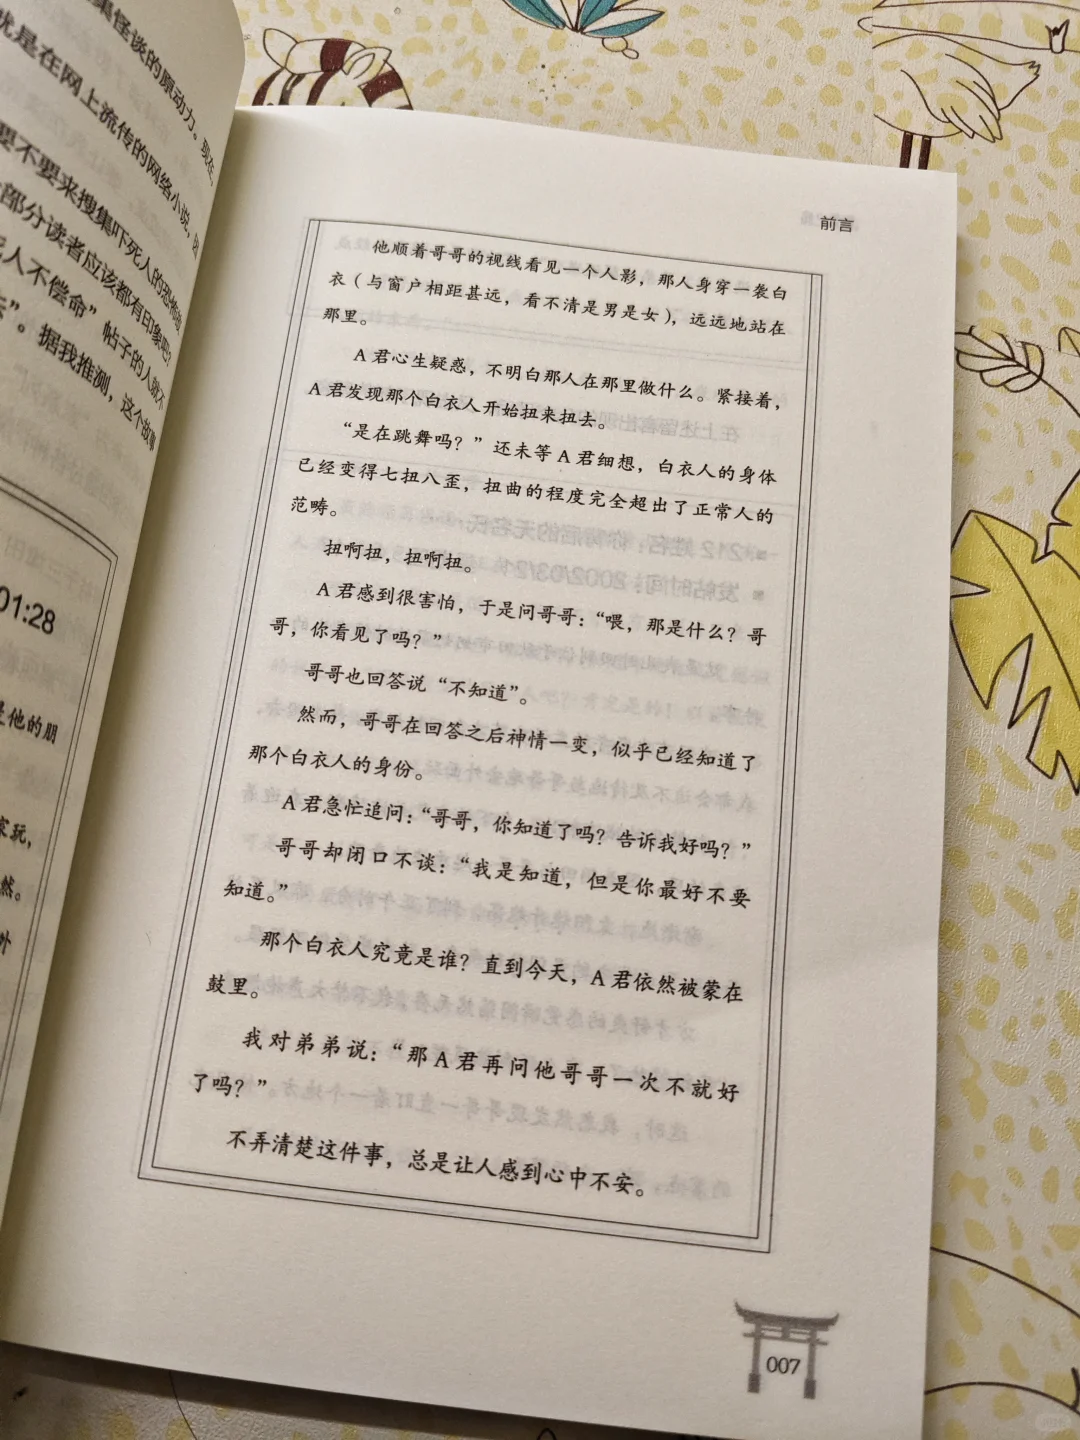 集怪谈的原动力。现在，
就是在网上流传的网络小说，
要不要来搜集吓死人的恐怖故
部分读者应该都有印象吧？
人不偿命”帖子的人就不
”。据我推测，这个故事
01:28
是他的朋
家玩，
然。
外
前言
他顺着哥哥的视线看见一个人影，那人身穿一袭白
衣（与窗户相距甚远，看不清是男是女），远远地站在
那里。
A 君心生疑惑，不明白那人在那里做什么。紧接着，
A 君发现那个白衣人开始扭来扭去。
“是在跳舞吗？”还未等 A 君细想，白衣人的身体
已经变得七扭八歪，扭曲的程度完全超出了正常人的
范畴。
扭啊扭，扭啊扭。
A 君感到很害怕，于是问哥哥：“喂，那是什么？哥
哥，你看见了吗？”
哥哥也回答说“不知道”。
然而，哥哥在回答之后神情一变，似乎已经知道了
那个白衣人的身份。
A 君急忙追问：“哥哥，你知道了吗？告诉我好吗？”
哥哥却闭口不谈：“我是知道，但是你最好不要
知道。”
那个白衣人究竟是谁？直到今天，A 君依然被蒙在
鼓里。
我对弟弟说：“那 A 君再问他哥哥一次不就好
了吗？”
不弄清楚这件事，总是让人感到心中不安。
007